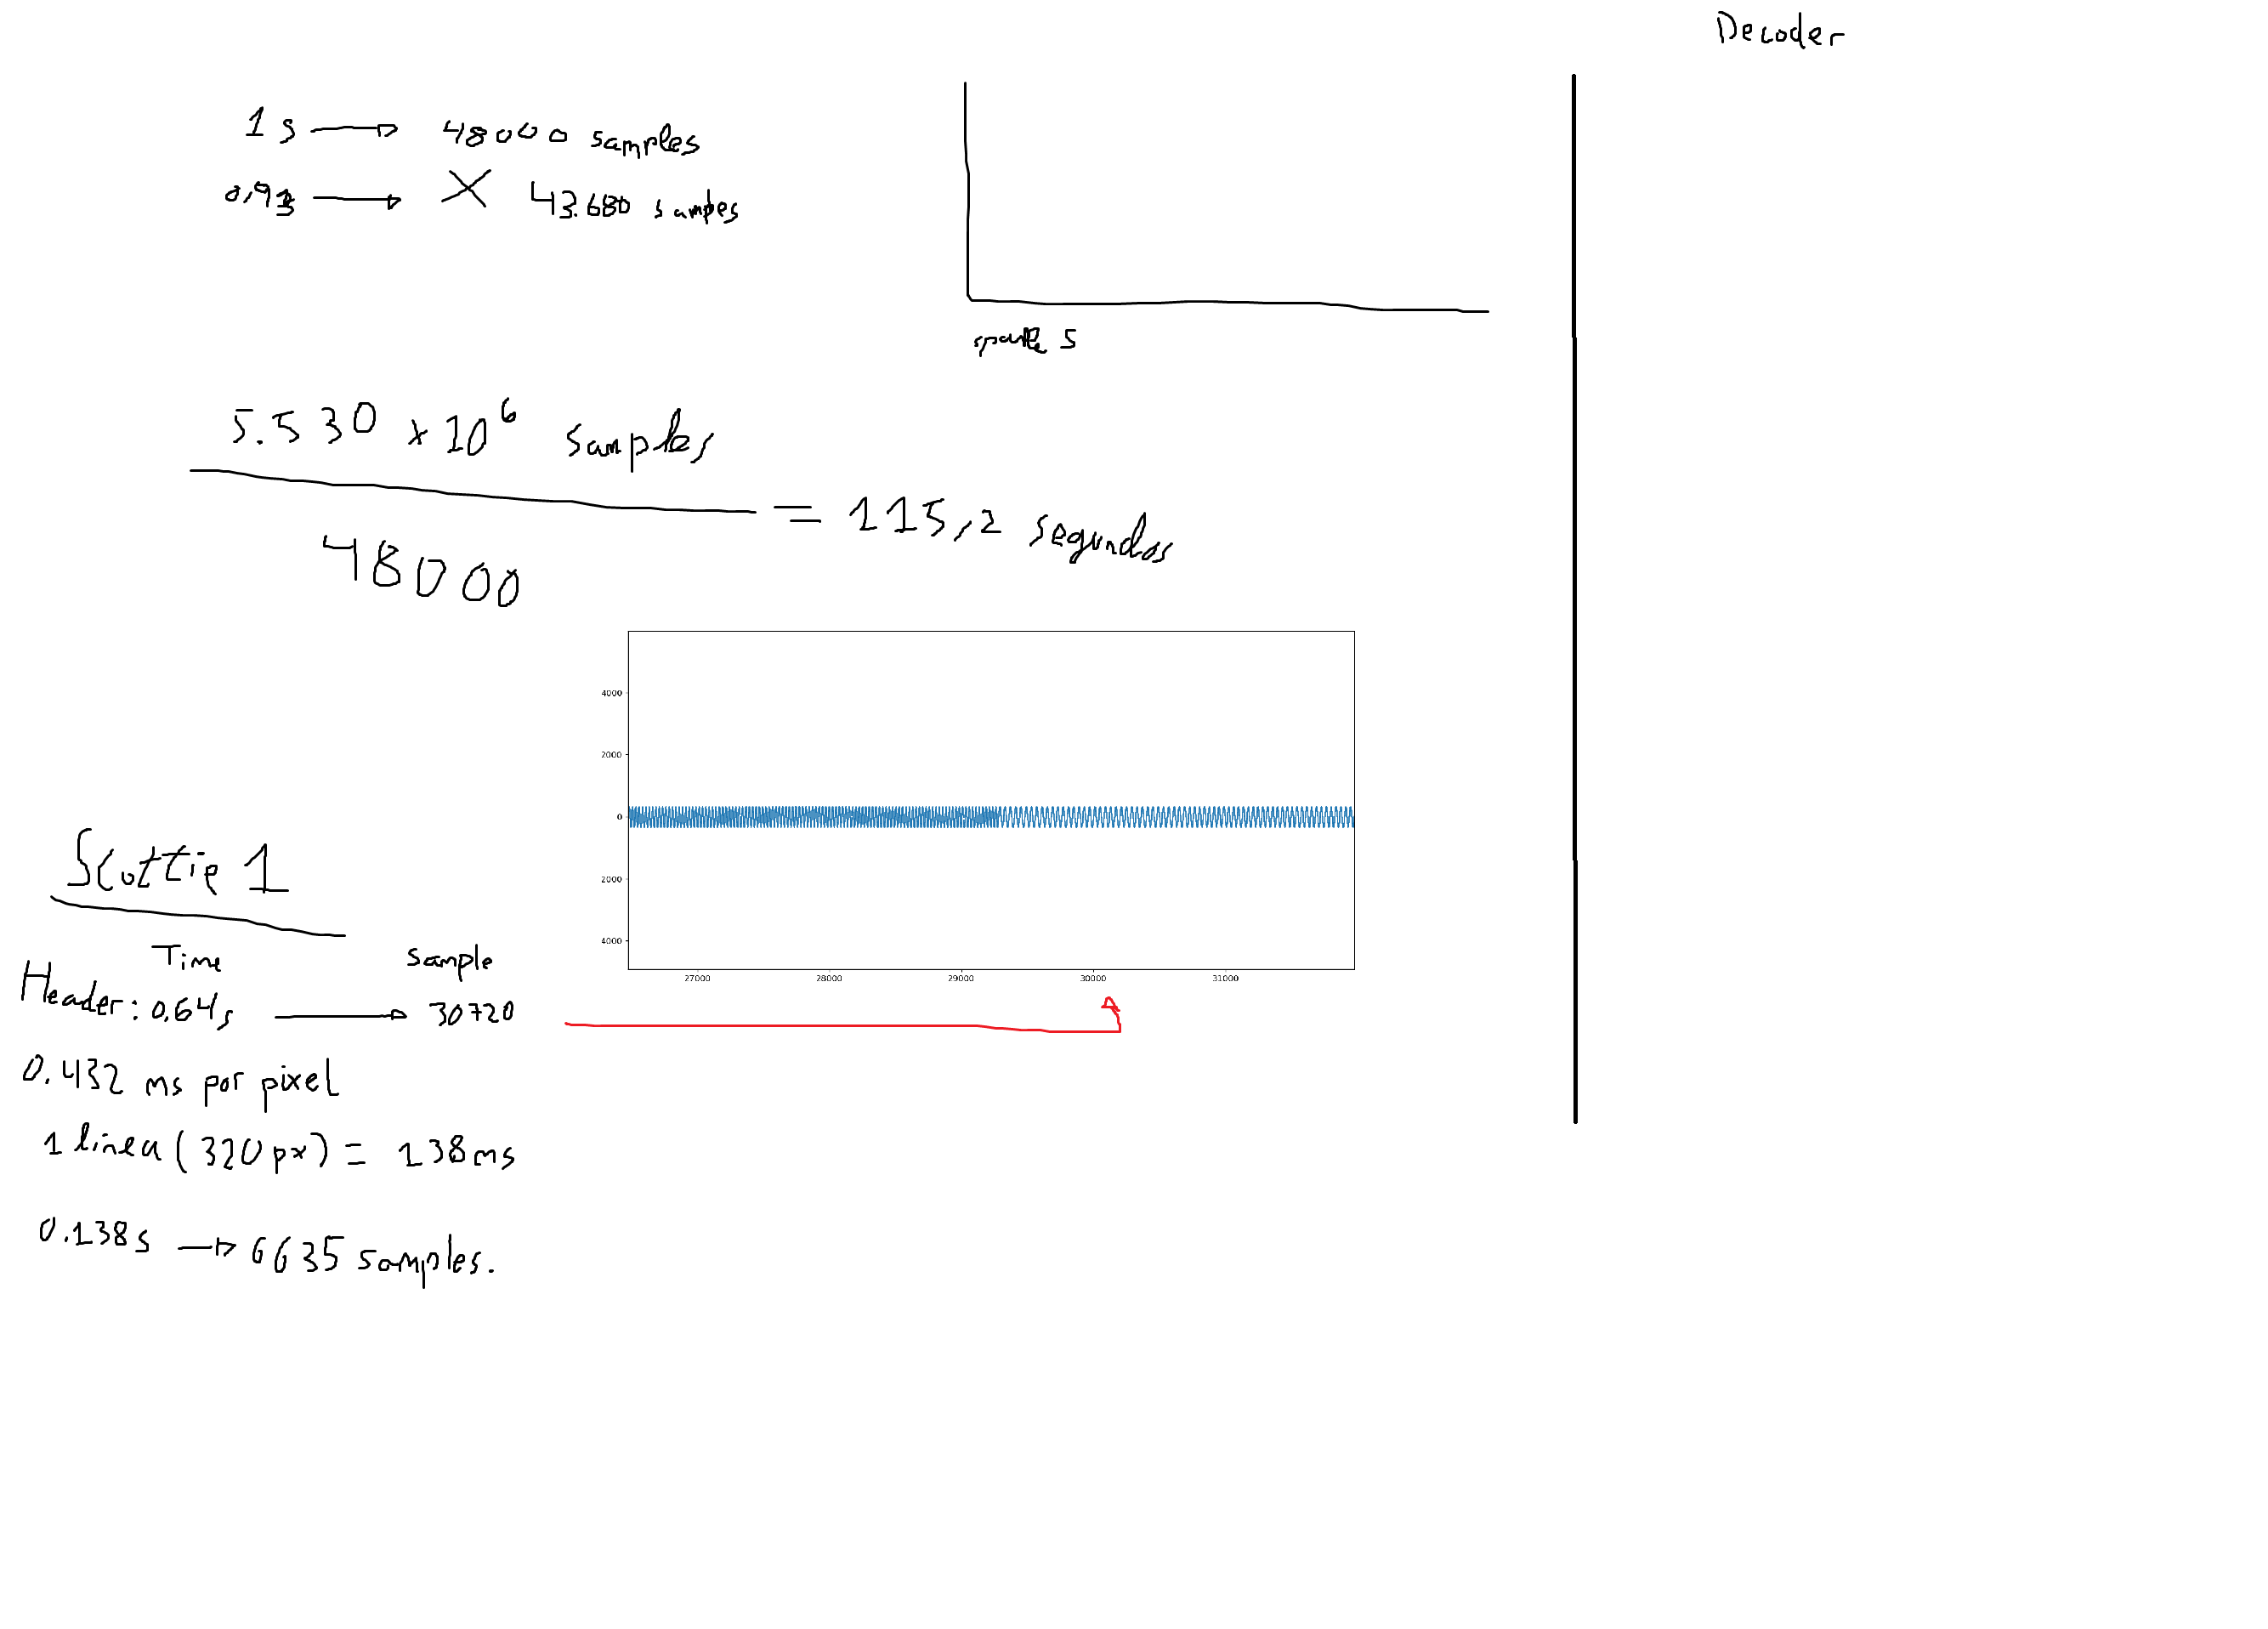 Decoder
1s → 48000 samples
X 43.680 samples
5.530 x 10^6 samples
48000
= 115,2 segundos
4000
2000
0
2000
4000
27000 28000 29000 30000 31000
Scottie 1
Time sample
Header: 0,64s → 30720
0.432 ms por pixel
1 linea (320px) = 138ms
0.138s → 6635 samples.